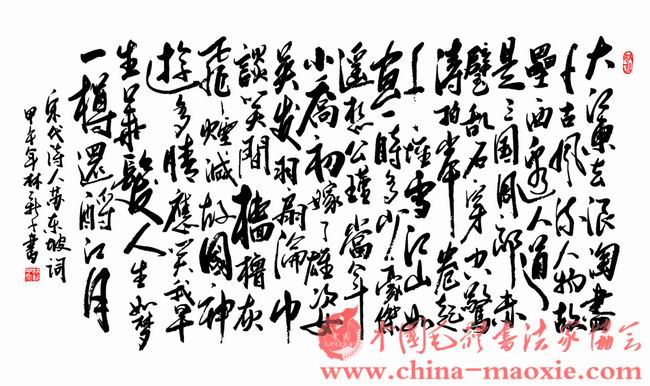 大江東去浪淘盡
千古風流人物故
壘西邊人道
是三國周郎赤
壁乱石穿空驚
濤拍岸卷起
千堆雪江山如
畫一時多少豪傑
遥想公瑾當年
小喬初嫁了雄姿
英发羽扇綸巾
談笑間檣櫓灰
飛煙滅故國神
遊多情應笑我早
生華髮人生如梦
一樽還酹江月
宋代诗人苏東坡词
甲午年林書
中國毛體書法家協会
www.china-maoxie.com